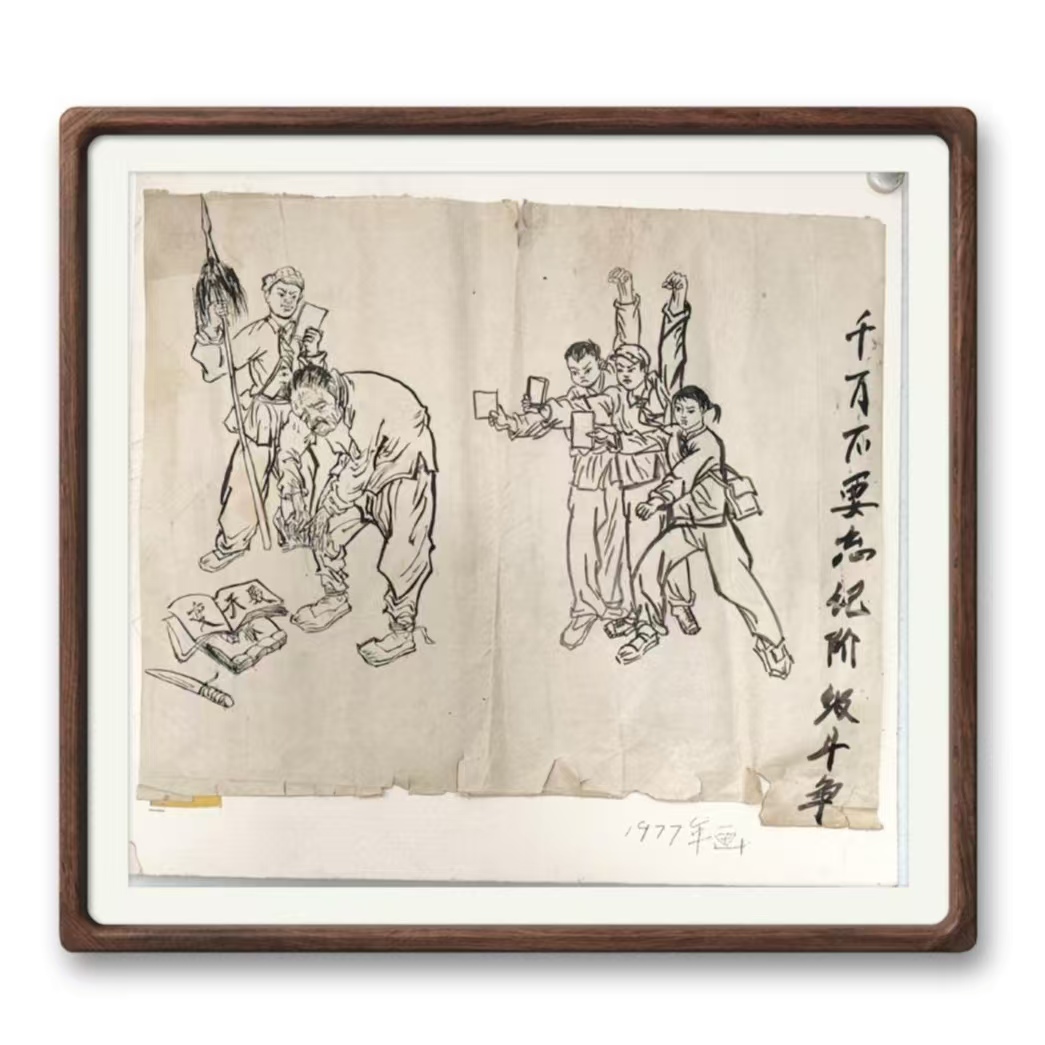 千万不要忘纪阶级斗争
变天
1977年画